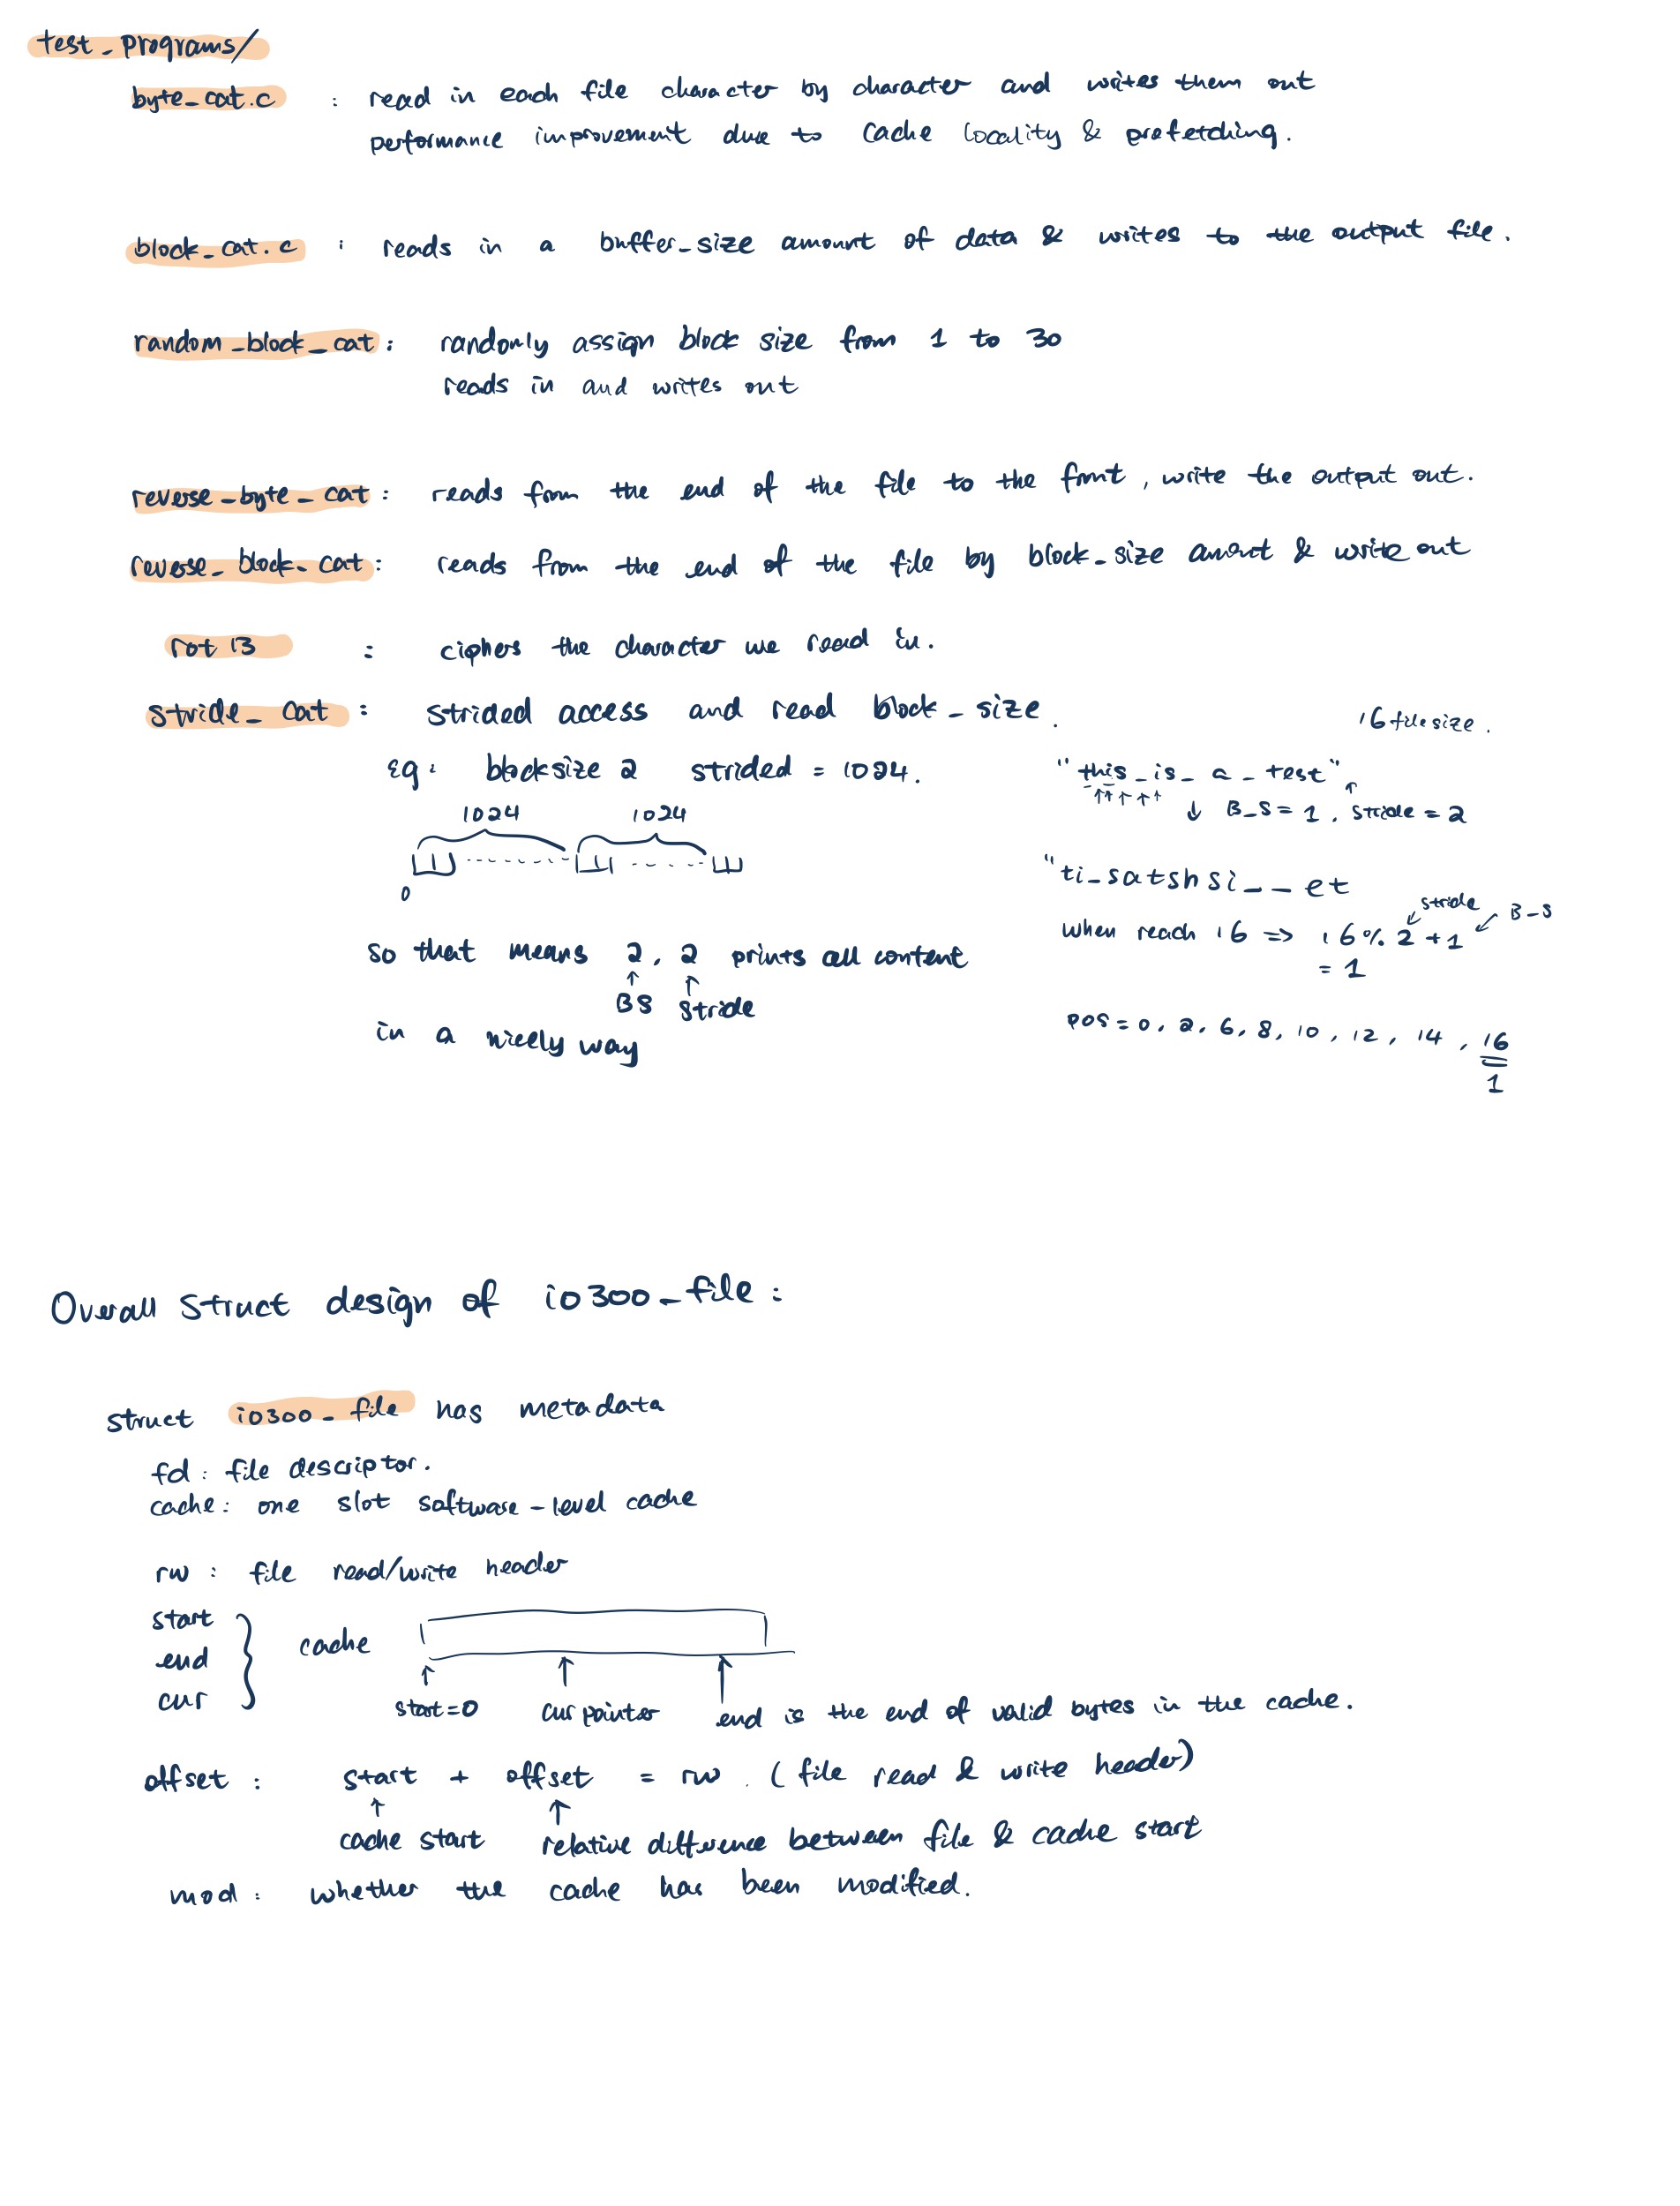 test_programs/
byte_cat.c : read in each file character by character and writes them out
performance improvement due to cache locality & prefetching.
block_cat.c : reads in a buffer_size amount of data & writes to the output file.
random_block_cat : randomly assign block size from 1 to 30
reads in and writes out
reverse_byte_cat : reads from the end of the file to the front, write the output out.
reverse_block_cat : reads from the end of the file by block_size amont & write out
rot 13 : ciphers the character we read in.
stride_cat : strided access and read block_size.
16 file size.
eg : blocksize 2 strided = 1024.
"this_is_a_test"
↓ B_S = 1, stride = 2
1024 1024
0
"ti_satshsi__et
stride B_S
when reach 16 => 16 % 2 + 1
= 1
so that means 2, 2 prints all content
BS stride
in a nicely way
pos = 0, 2, 6, 8, 10, 12, 14, 16
1
Overall struct design of io300_file :
struct io300_file has metadata
fd : file descriptor.
cache : one slot software-level cache
rw : file read/write header
start
end
cur
cache
start=0 cur pointer end is the end of valid bytes in the cache.
offset : start + offset = rw. (file read & write header)
cache start relative difference between file & cache start
mod : whether the cache has been modified.